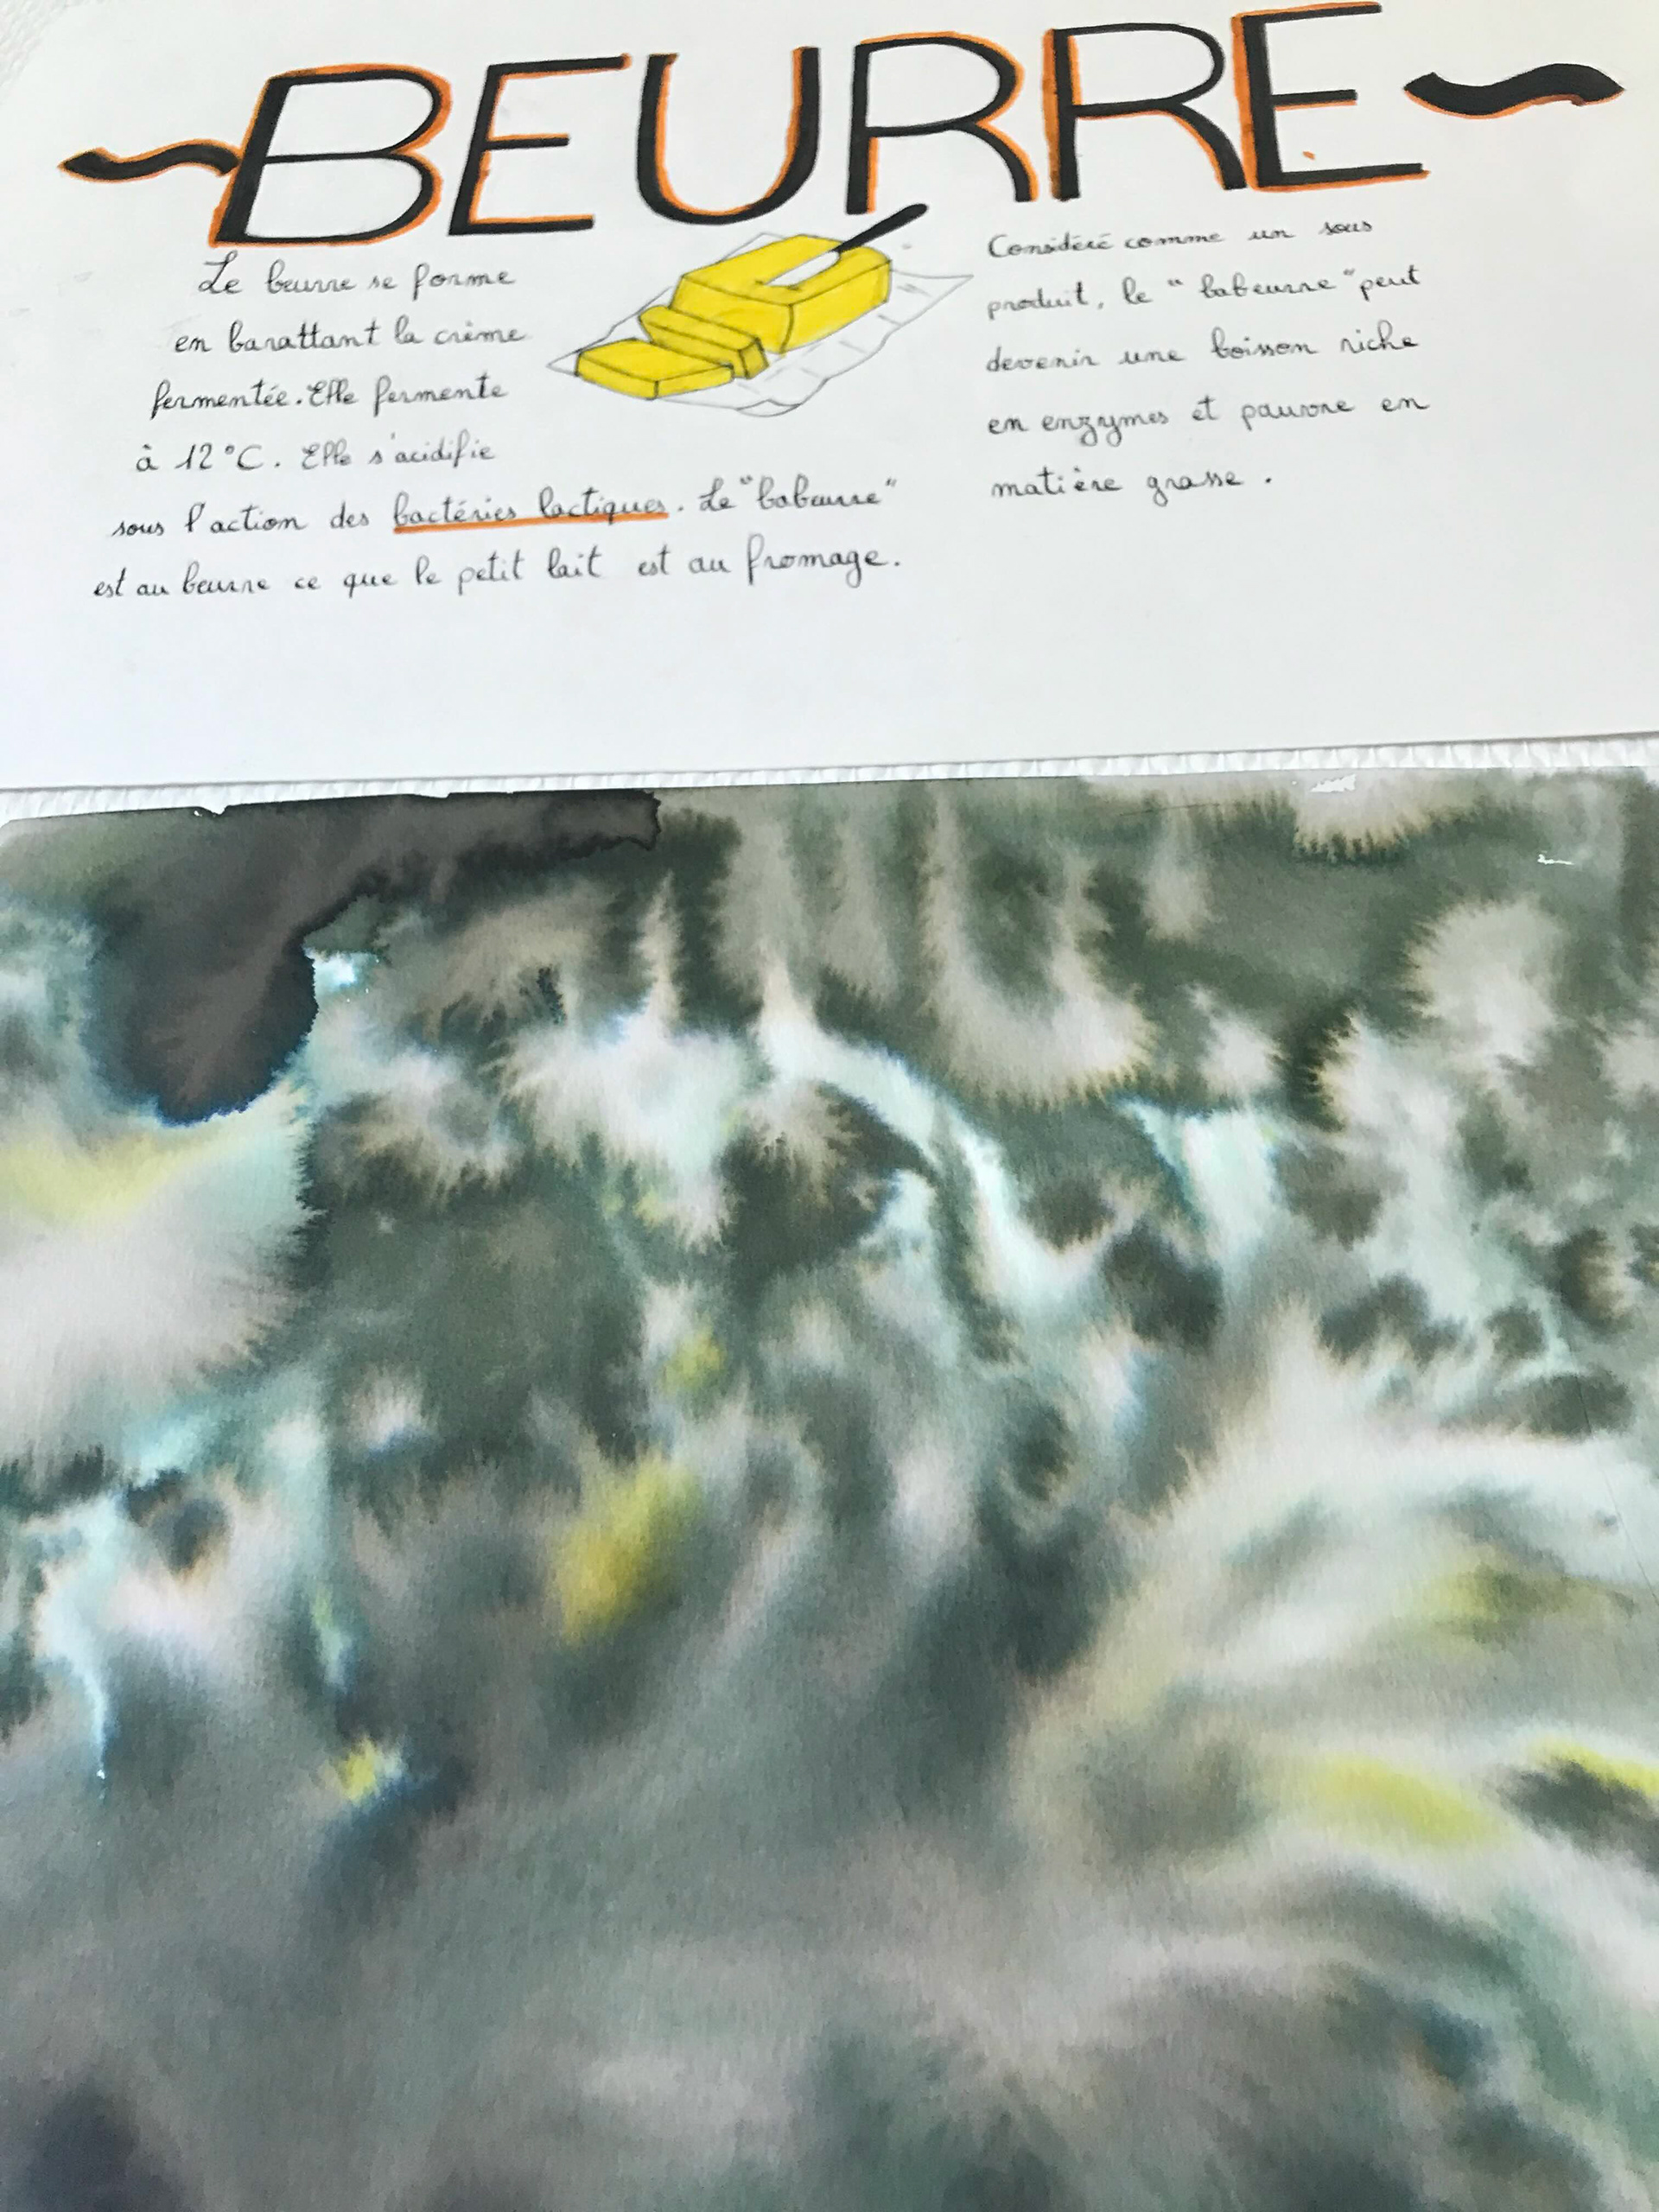 ~BEURRE~
Le beurre se forme
en barattant la crème
fermentée. Elle fermente
à 12°C. Elle s'acidifie
sous l'action des bactéries lactiques. Le "babeurre"
est au beurre ce que le petit lait est au fromage.
Considéré comme un sous
produit, le "babeurre" peut
devenir une boisson riche
en enzymes et pauvre en
matière grasse.